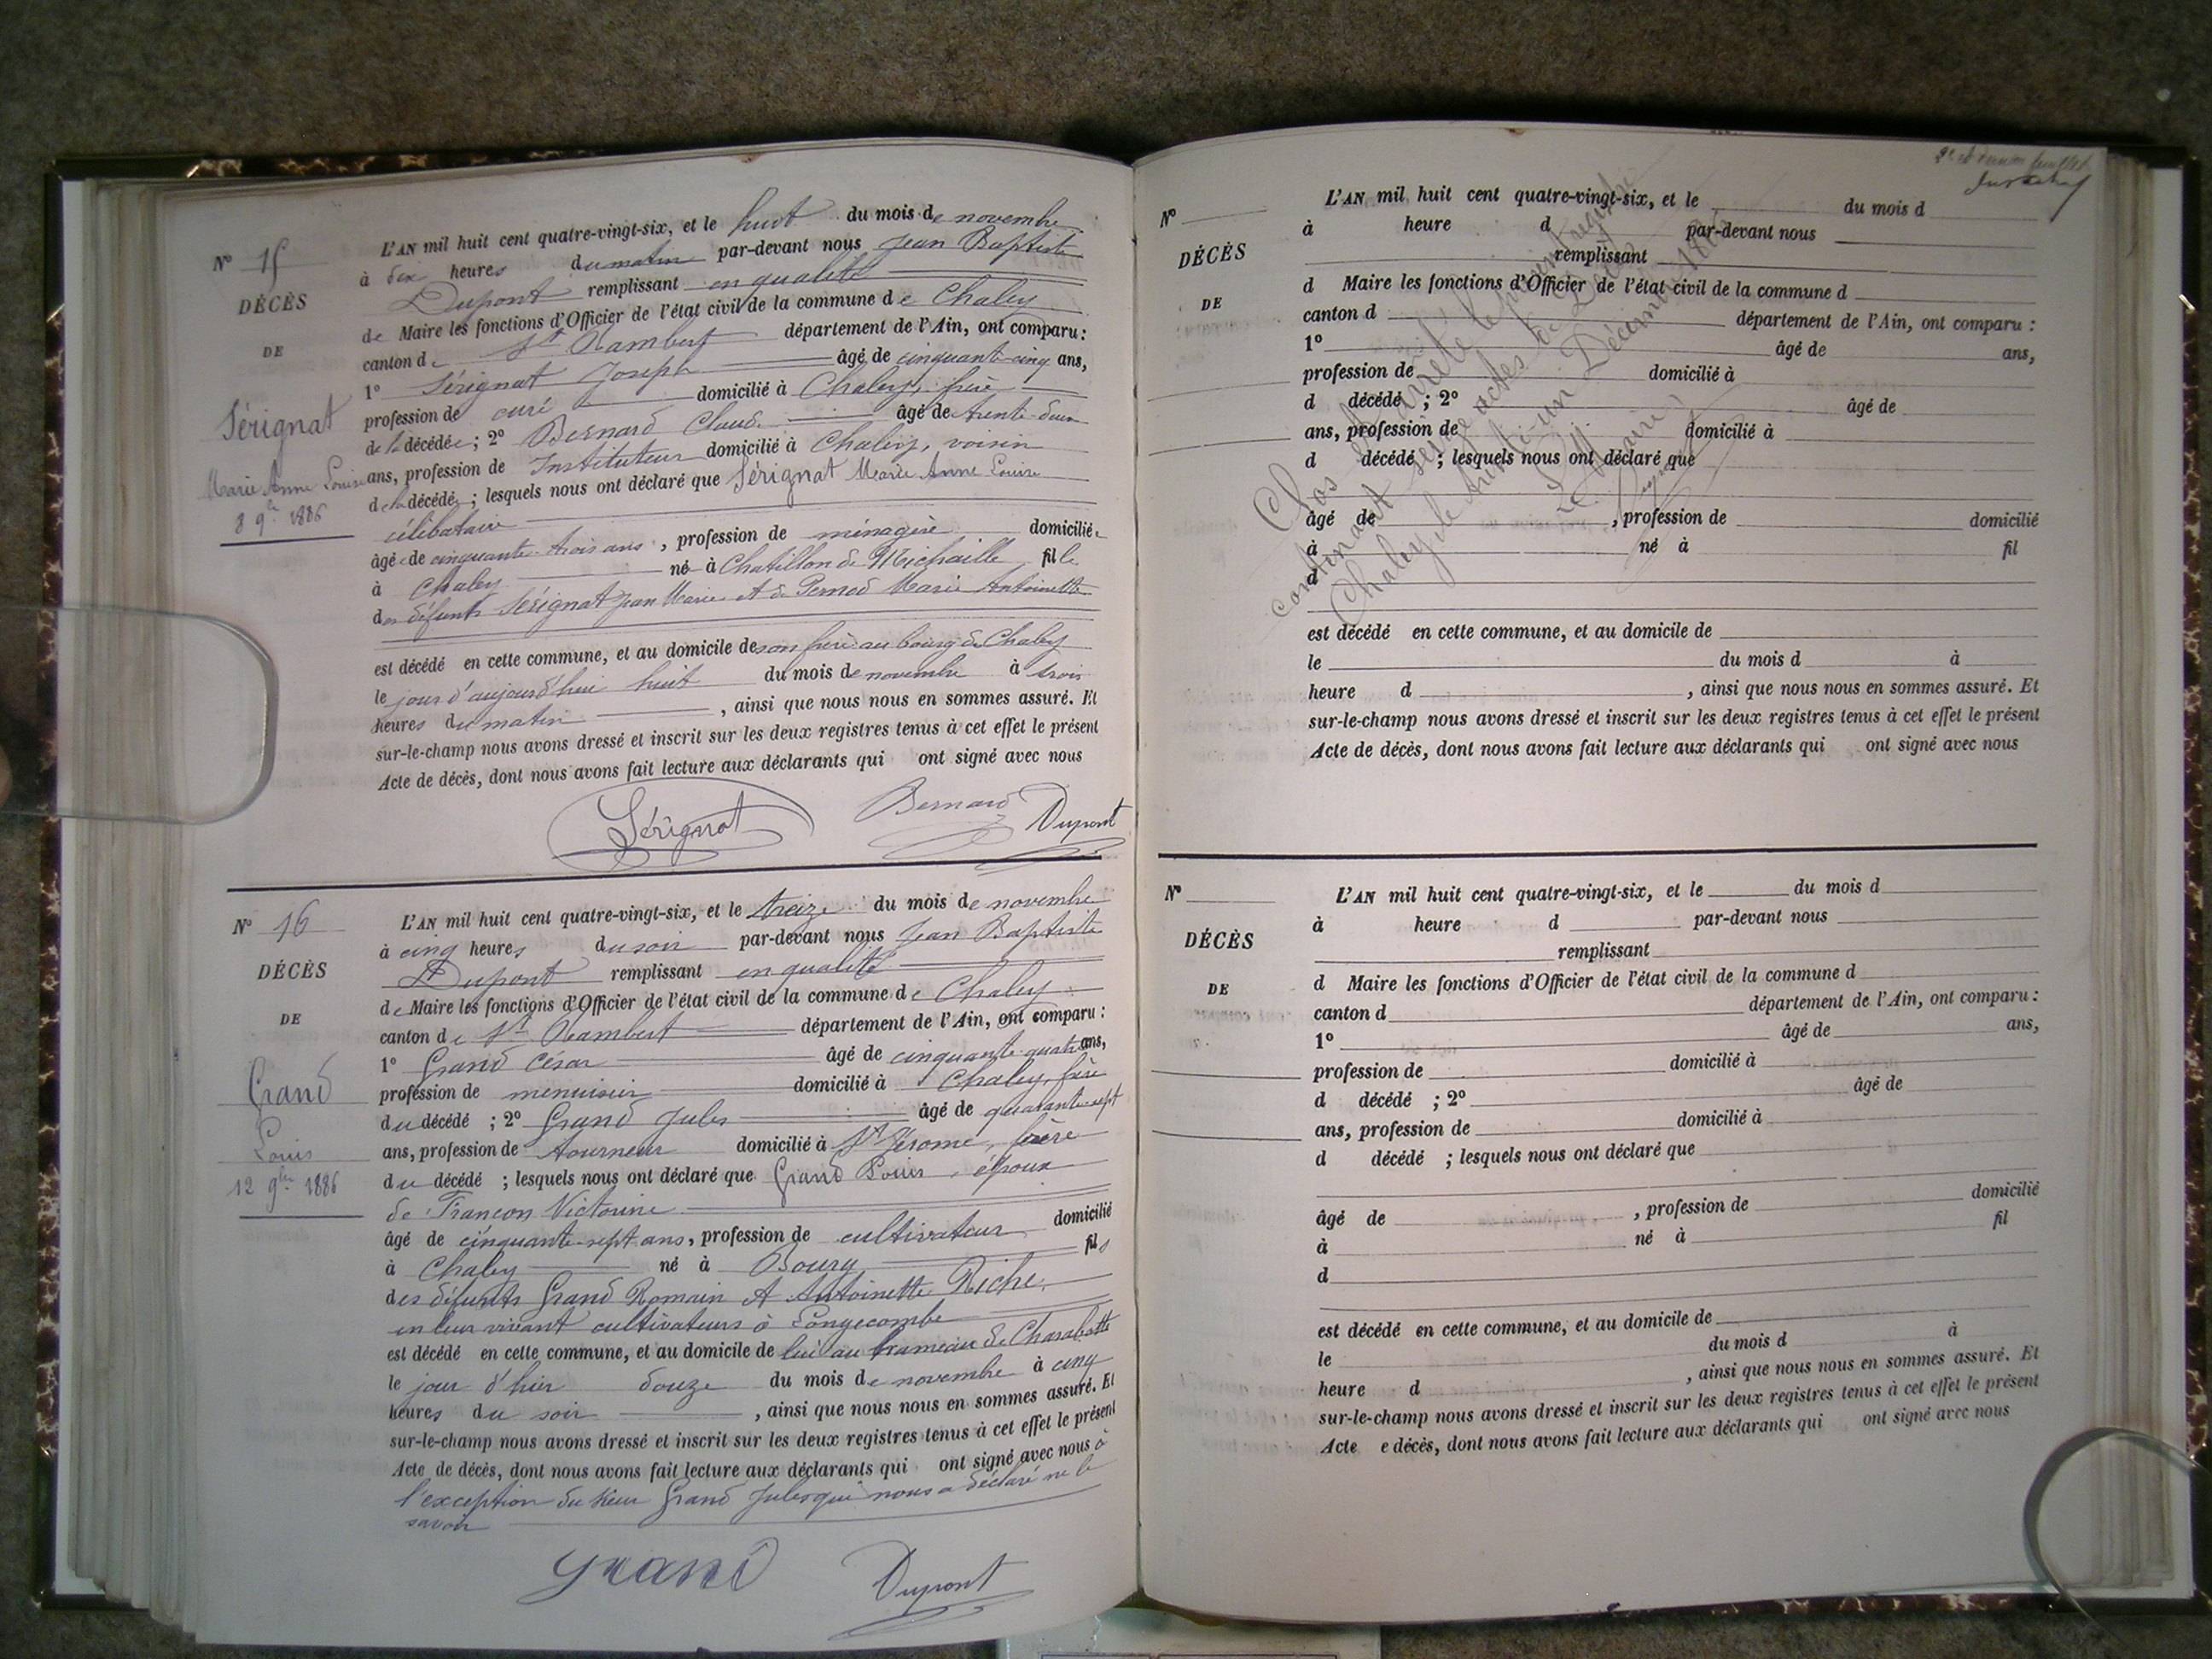 L'AN mil huit cent quatre-vingt-six, et le huit du mois de novembre
N° 15
à dix heures du matin par-devant nous Jean Baptiste
DÉCÈS
Dupont remplissant en qualité
DE
de Maire les fonctions d'Officier de l'état civil de la commune de Chaley
canton de St Rambert département de l'Ain, ont comparu :
1° Sérignat Joseph âgé de cinquante-cinq ans,
profession de curé domicilié à Chaley, frère
de la décédée ; 2° Bernard Claude âgé de trente-deux
ans, profession de Instituteur domicilié à Chaley, voisin
de la décédée ; lesquels nous ont déclaré que Sérignat Marie Anne Louise
Sérignat
Marie Anne Louise
8 9bre 1886
célibataire
âgée de cinquante-trois ans, profession de ménagère domiciliée
à Chaley né à Chatillon de Michaille fille
des défunts Sérignat Jean Marie et de Pernod Marie Antoinette
est décédé en cette commune, et au domicile de son frère au bourg de Chaley
le jour d'aujourd'hui huit du mois de novembre à trois
heures du matin, ainsi que nous nous en sommes assuré. Et
sur-le-champ nous avons dressé et inscrit sur les deux registres tenus à cet effet le présent
Acte de décès, dont nous avons fait lecture aux déclarants qui ont signé avec nous
Sérignat Bernard Dupont
N° 16
DÉCÈS
DE
Grand
Louis
12 9bre 1886
L'AN mil huit cent quatre-vingt-six, et le treize du mois de novembre
à cinq heures du soir par-devant nous Jean Baptiste
Dupont remplissant en qualité
de Maire les fonctions d'Officier de l'état civil de la commune de Chaley
canton de St Rambert département de l'Ain, ont comparu :
1° Grand César âgé de cinquante-quatre ans,
profession de menuisier domicilié à Chaley, frère
du décédé ; 2° Grand Jules âgé de quarante-sept
ans, profession de tourneur domicilié à St Jérome, frère
du décédé ; lesquels nous ont déclaré que Grand Louis, époux
de Françon Victorine
âgé de cinquante-sept ans, profession de cultivateur domicilié
à Chaley né à Bourg fils
des défunts Grand Romain et Antoinette Riche,
en leur vivant cultivateurs à Longecombe
est décédé en cette commune, et au domicile de lui au hameau de Charabotte
le jour d'hier douze du mois de novembre à cinq
heures du soir, ainsi que nous nous en sommes assuré. Et
sur-le-champ nous avons dressé et inscrit sur les deux registres tenus à cet effet le présent
Acte de décès, dont nous avons fait lecture aux déclarants qui ont signé avec nous à
l'exception du sieur Grand Jules qui nous a déclaré ne le
savoir
Grand Dupont
2e et dernier feuillet
N°
DÉCÈS
DE
L'AN mil huit cent quatre-vingt-six, et le du mois d
à heure d par-devant nous
remplissant
d Maire les fonctions d'Officier de l'état civil de la commune d
canton d département de l'Ain, ont comparu :
1° âgé de ans,
profession de domicilié à
d décédé ; 2° âgé de
ans, profession de domicilié à
d décédé ; lesquels nous ont déclaré que
âgé de , profession de domicilié
à né à fil
d
est décédé en cette commune, et au domicile de
le du mois d à
heure d , ainsi que nous nous en sommes assuré. Et
sur-le-champ nous avons dressé et inscrit sur les deux registres tenus à cet effet le présent
Acte de décès, dont nous avons fait lecture aux déclarants qui ont signé avec nous
Clos et arrêté le présent registre
contenant seize actes de Décès
Chaley, le trente-un Décembre 1886
Le Maire,
Dupont
N°
DÉCÈS
DE
L'AN mil huit cent quatre-vingt-six, et le du mois d
à heure d par-devant nous
remplissant
d Maire les fonctions d'Officier de l'état civil de la commune d
canton d département de l'Ain, ont comparu :
1° âgé de ans,
profession de domicilié à
d décédé ; 2° âgé de
ans, profession de domicilié à
d décédé ; lesquels nous ont déclaré que
âgé de , profession de domicilié
à né à fil
d
est décédé en cette commune, et au domicile de
le du mois d à
heure d , ainsi que nous nous en sommes assuré. Et
sur-le-champ nous avons dressé et inscrit sur les deux registres tenus à cet effet le présent
Acte e décès, dont nous avons fait lecture aux déclarants qui ont signé avec nous